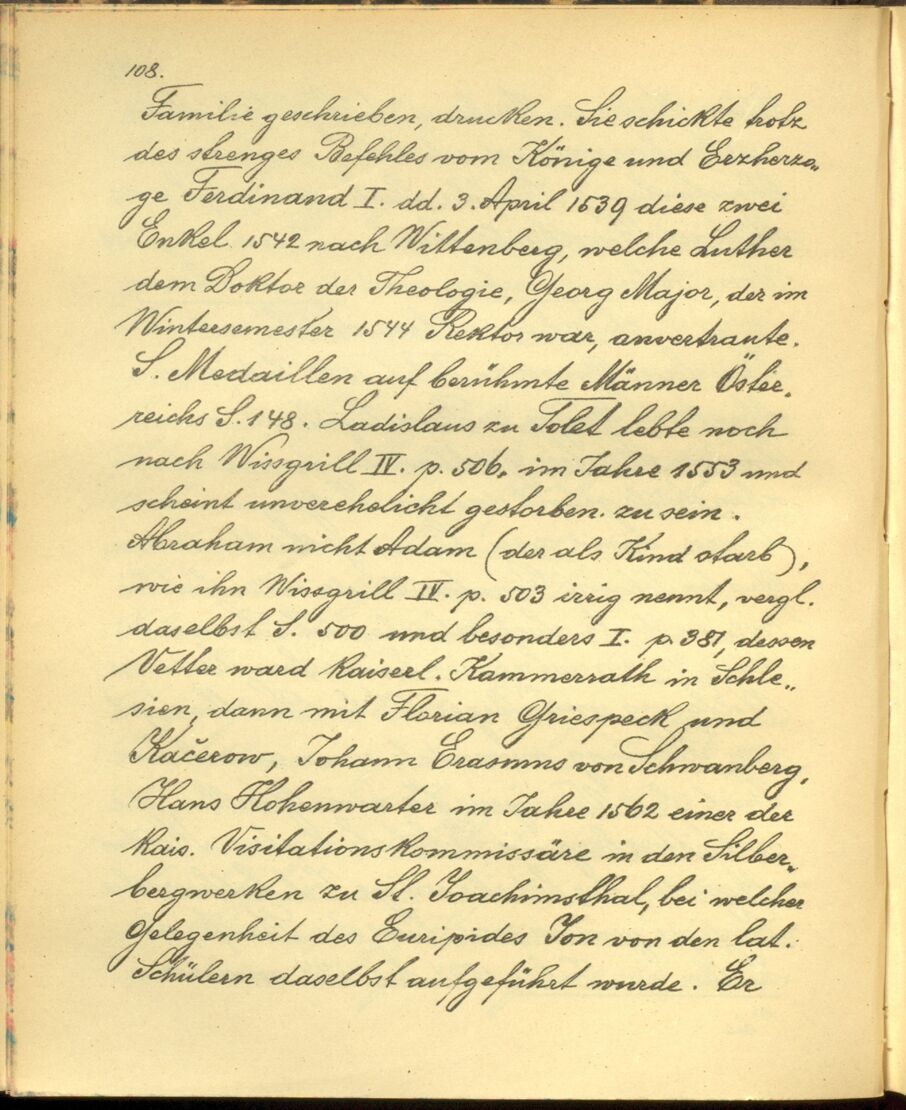 108.
Familie geschrieben, drucken. Sie schickte trotz
des strenges Befehles vom Könige und Erzherzo„
ge Ferdinand I. dd. 3. April 1539 diese zwei
Enkel 1542 nach Wittenberg, welche Luther
dem Doktor der Theologie, Georg Major, der im
Wintersemester 1544 Rektor war, anvertraute.
S. Medaillen auf berühmte Männer Öster„
reichs S. 148. Ladislaus zu Tolet lebte noch
nach Wissgrill IV. p. 506, im Jahre 1553 und
scheint unverehelicht gestorben. zu sein.
Abraham nicht Adam (der als Kind starb),
wie ihn Wissgrill IV. p. 503 irrig nennt, vergl.
daselbst S. 500 und besonders I. p. 381, dessen
Vetter ward kaiserl. Kammerrath in Schle„
sien, dann mit Florian Griespeck und
Kačerow, Johann Erasmus von Schwanberg,
Hans Hohenwarter im Jahre 1562 einer der
kais. Visitationskommissäre in den Silber„
bergwerken zu St. Joachimsthal, bei welcher
Gelegenheit des Euripides Jon von den lat.
Schülern daselbst aufgeführt wurde. Er